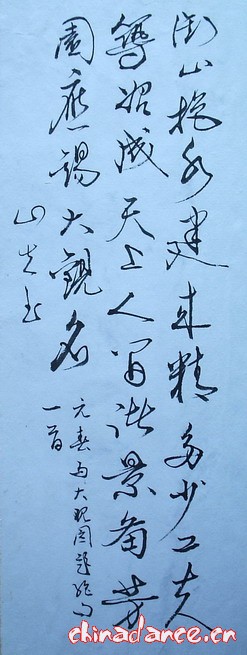 衔山抱水建来精多少工夫
筑始成天上人间诸景备芳
园应锡大观名
元春为大观园题绝句
一首
山左书
chinadance.cn